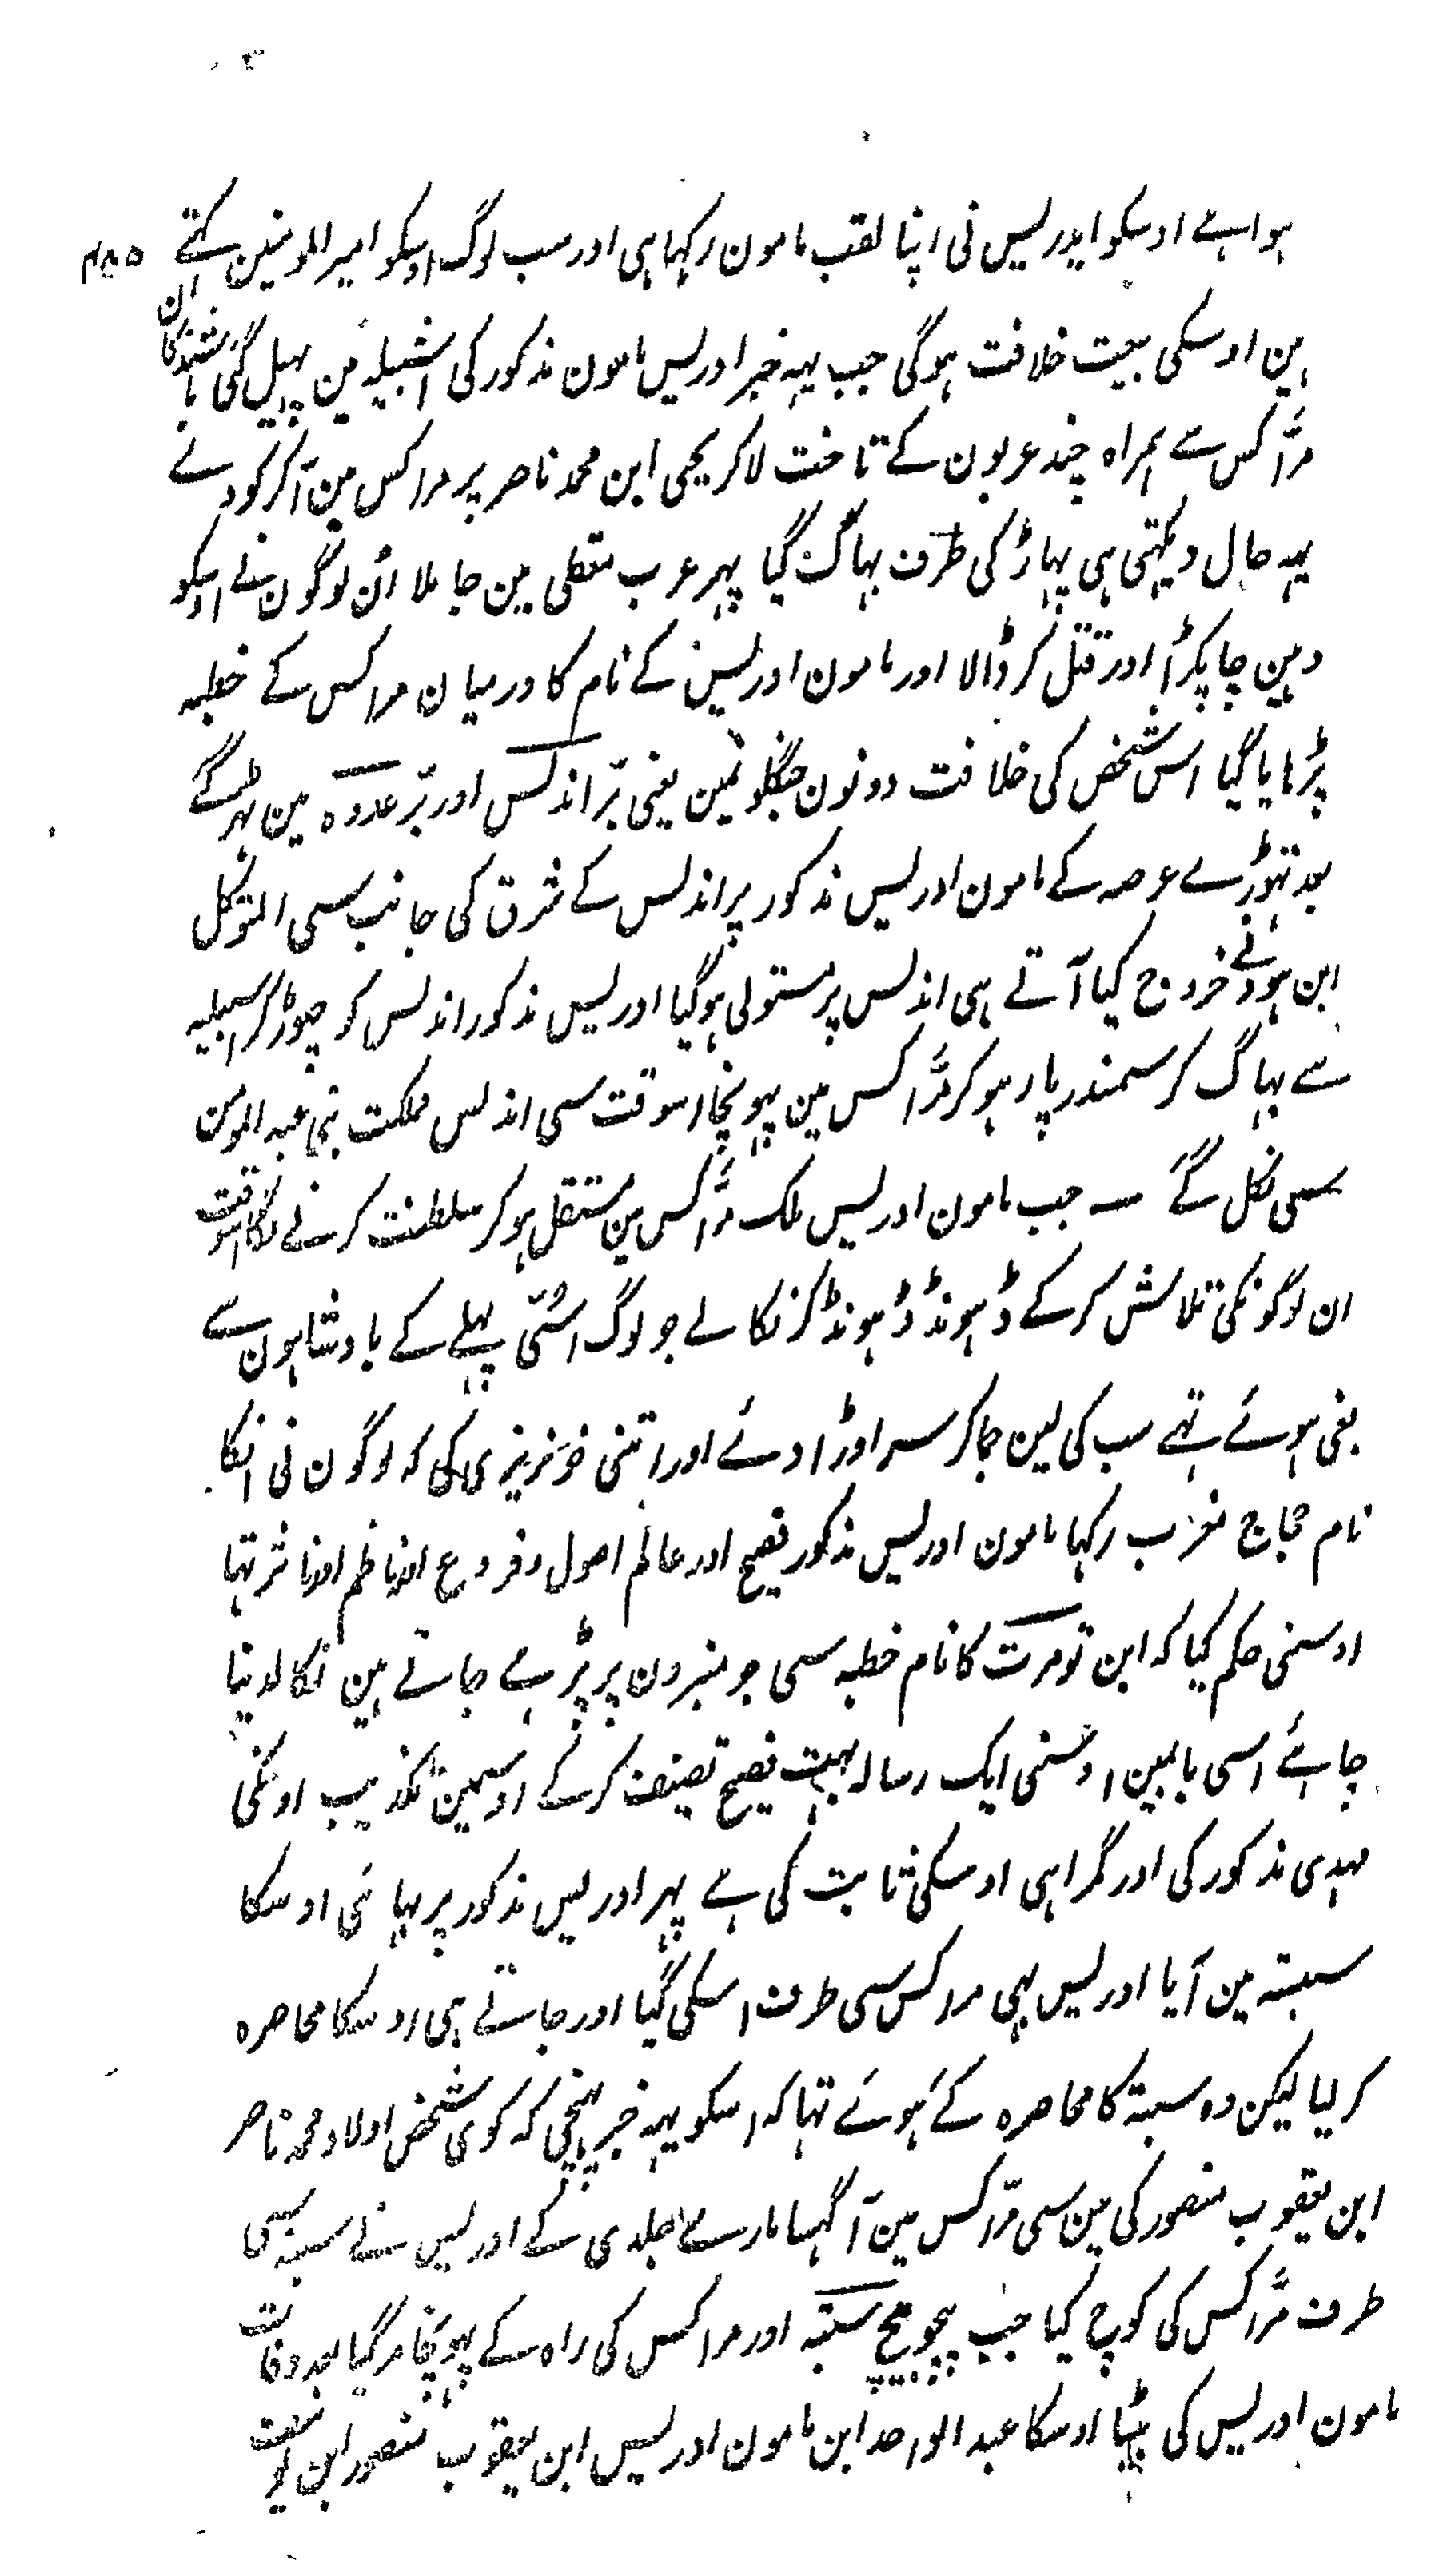 ہوا ہے اوسکو ادریس نی اپنا لقب مامون رکہا ہی اور سب لوگ اوسکو امیر المومنین کہتے
ہین اوسکی بیعت خلافت ہوگی جب یہہ خبر ادریس مامون مذکور کی اشبیلیہ مین پہیل گئی باشندگان
مرّاکس سے ہمراہ چند عربون کے تاخت لاکر یحیی ابن محمد ناصر پر مراکس مین آکر کودے
یہہ حال دیکہتی ہی پہاڑ کی طرف بہاگ گیا پہر عرب معقلی مین جا ملا اُن لوگون نے اوسکو
وہین جا پکڑا اور قتل کر ڈالا اور مامون ادریس کے نام کا درمیان مراکس کے خطبہ
پڑہایا گیا اس شخص کی خلافت دونون جنگلونمین یعنی برّ اندلس اور برّ عدوہ مین ٹہر گئے
بعد تہوڑے عرصہ کے مامون ادریس مذکور پر اندلس کے شرق کی جانب سی المتوکل
ابن ہود نے خروج کیا آتے ہی اندلس پر مستولی ہوگیا ادریس مذکور اندلس کو چہوڑ کر اشبیلیہ
سے بہاگ کر سمندر پار ہو کر مرّاکس مین پہونچا اسوقت سی اندلس مملکت بنی عبد المومن
سی نکل گئے ـ جب مامون ادریس ملک مرّاکس مین مستقل ہو کر سلطنت کرنے لگا اسوقت
ان لوگونکی تلاش کرکے ڈہونڈ ڈہونڈ کر نکالے جو لوگ اسّی پہلے کے بادشاہون سے
بغی ہوئے تہے سب کی لین جا کر سر اوڑا دئے اور اتنی خونریزی کی کہ لوگون نی انکا
نام حجاج مغرب رکہا مامون ادریس مذکور فصیح اور عالم اصول و فروع اور ناظم اور ناثر تہا
اوسنی حکم کیا کہ ابن تومرت کا نام خطبہ سی جو منبرون پر پڑہے جاتے ہین نکالدینا
چاہئے اسی بابمین اوسنی ایک رسالہ بہت فصیح تصنیف کرکے اوسمین تکذیب اونکی
مہدی مذکور کی اور گمراہی اوسکی ثابت کی ہے پہر ادریس مذکور پر بہائی اوسکا
سبتہ مین آیا ادریس بہی مراکس سی طرف اسکی گیا اور جاتے ہی اوسکا محاصرہ
کر لیا لیکن وہ سبتہ کا محاصرہ کئے ہوئے تہا کہ اسکو یہہ خبر پہنچی کہ کوی شخص اولاد محمد ناصر
ابن یعقوب منصور کی مین سی مرّاکس مین آ گہسا مارے جلدی کے ادریس نے سبتہ سی
طرف مرّاکس کی کوچ کیا جب بیچو بیچ سبتہ اور مراکس کی راہ کے پہونچا مر گیا بعد وفات
مامون ادریس کی بیٹا اوسکا عبد الواحد ابن مامون ادریس ابن یعقوب منصور ابن یوسف